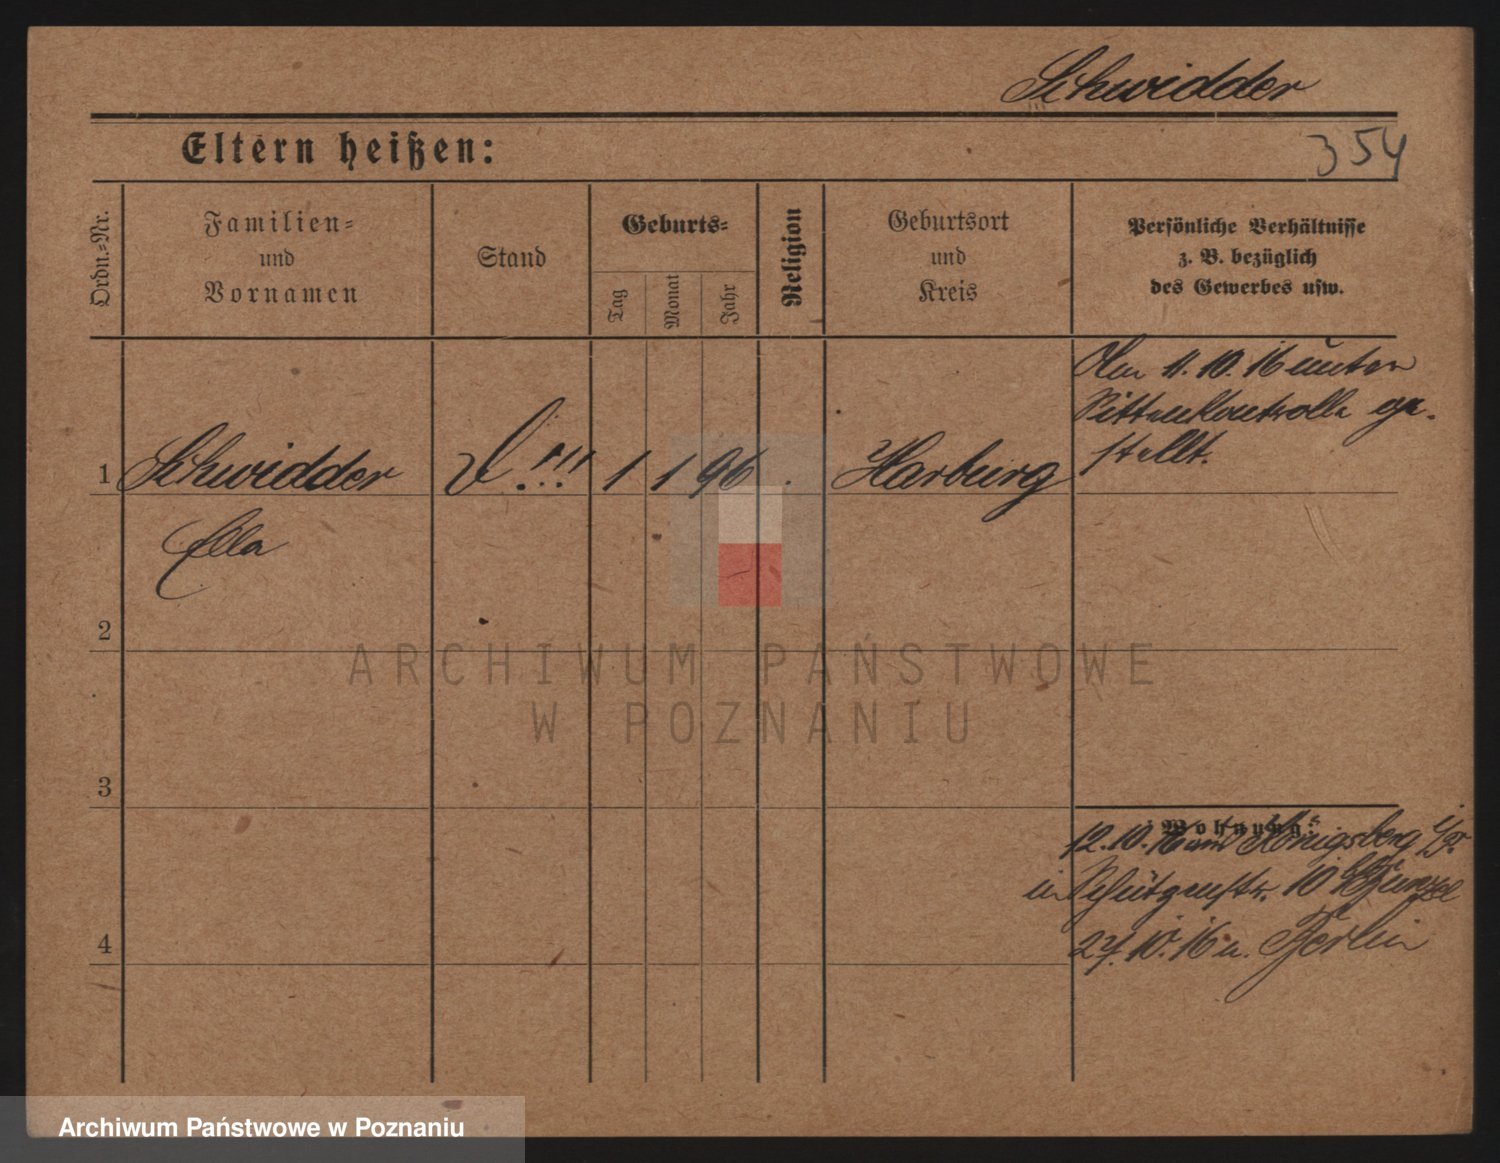 Schwidder
Eltern heißen:
354
Ordn.=Nr.
Familien=
und
Vornamen
Stand
Geburts=
Tag
Monat
Jahr
Religion
Geburtsort
und
Kreis
Persönliche Verhältnisse
z. B. bezüglich
des Gewerbes usw.
1
Schwidder
!!!
1
1
96
Harburg
Am 11.10.16 unter
Sittenkontrolle ge-
stellt.
Ella
2
ARCHIWUM PAŃSTWOWE
W POZNANIU
3
Wohnung:
12.10.16 Königsberg i/Pr
in Schützenstr. 10
4
27.10.16 n. Berlin
Archiwum Państwowe w Poznaniu